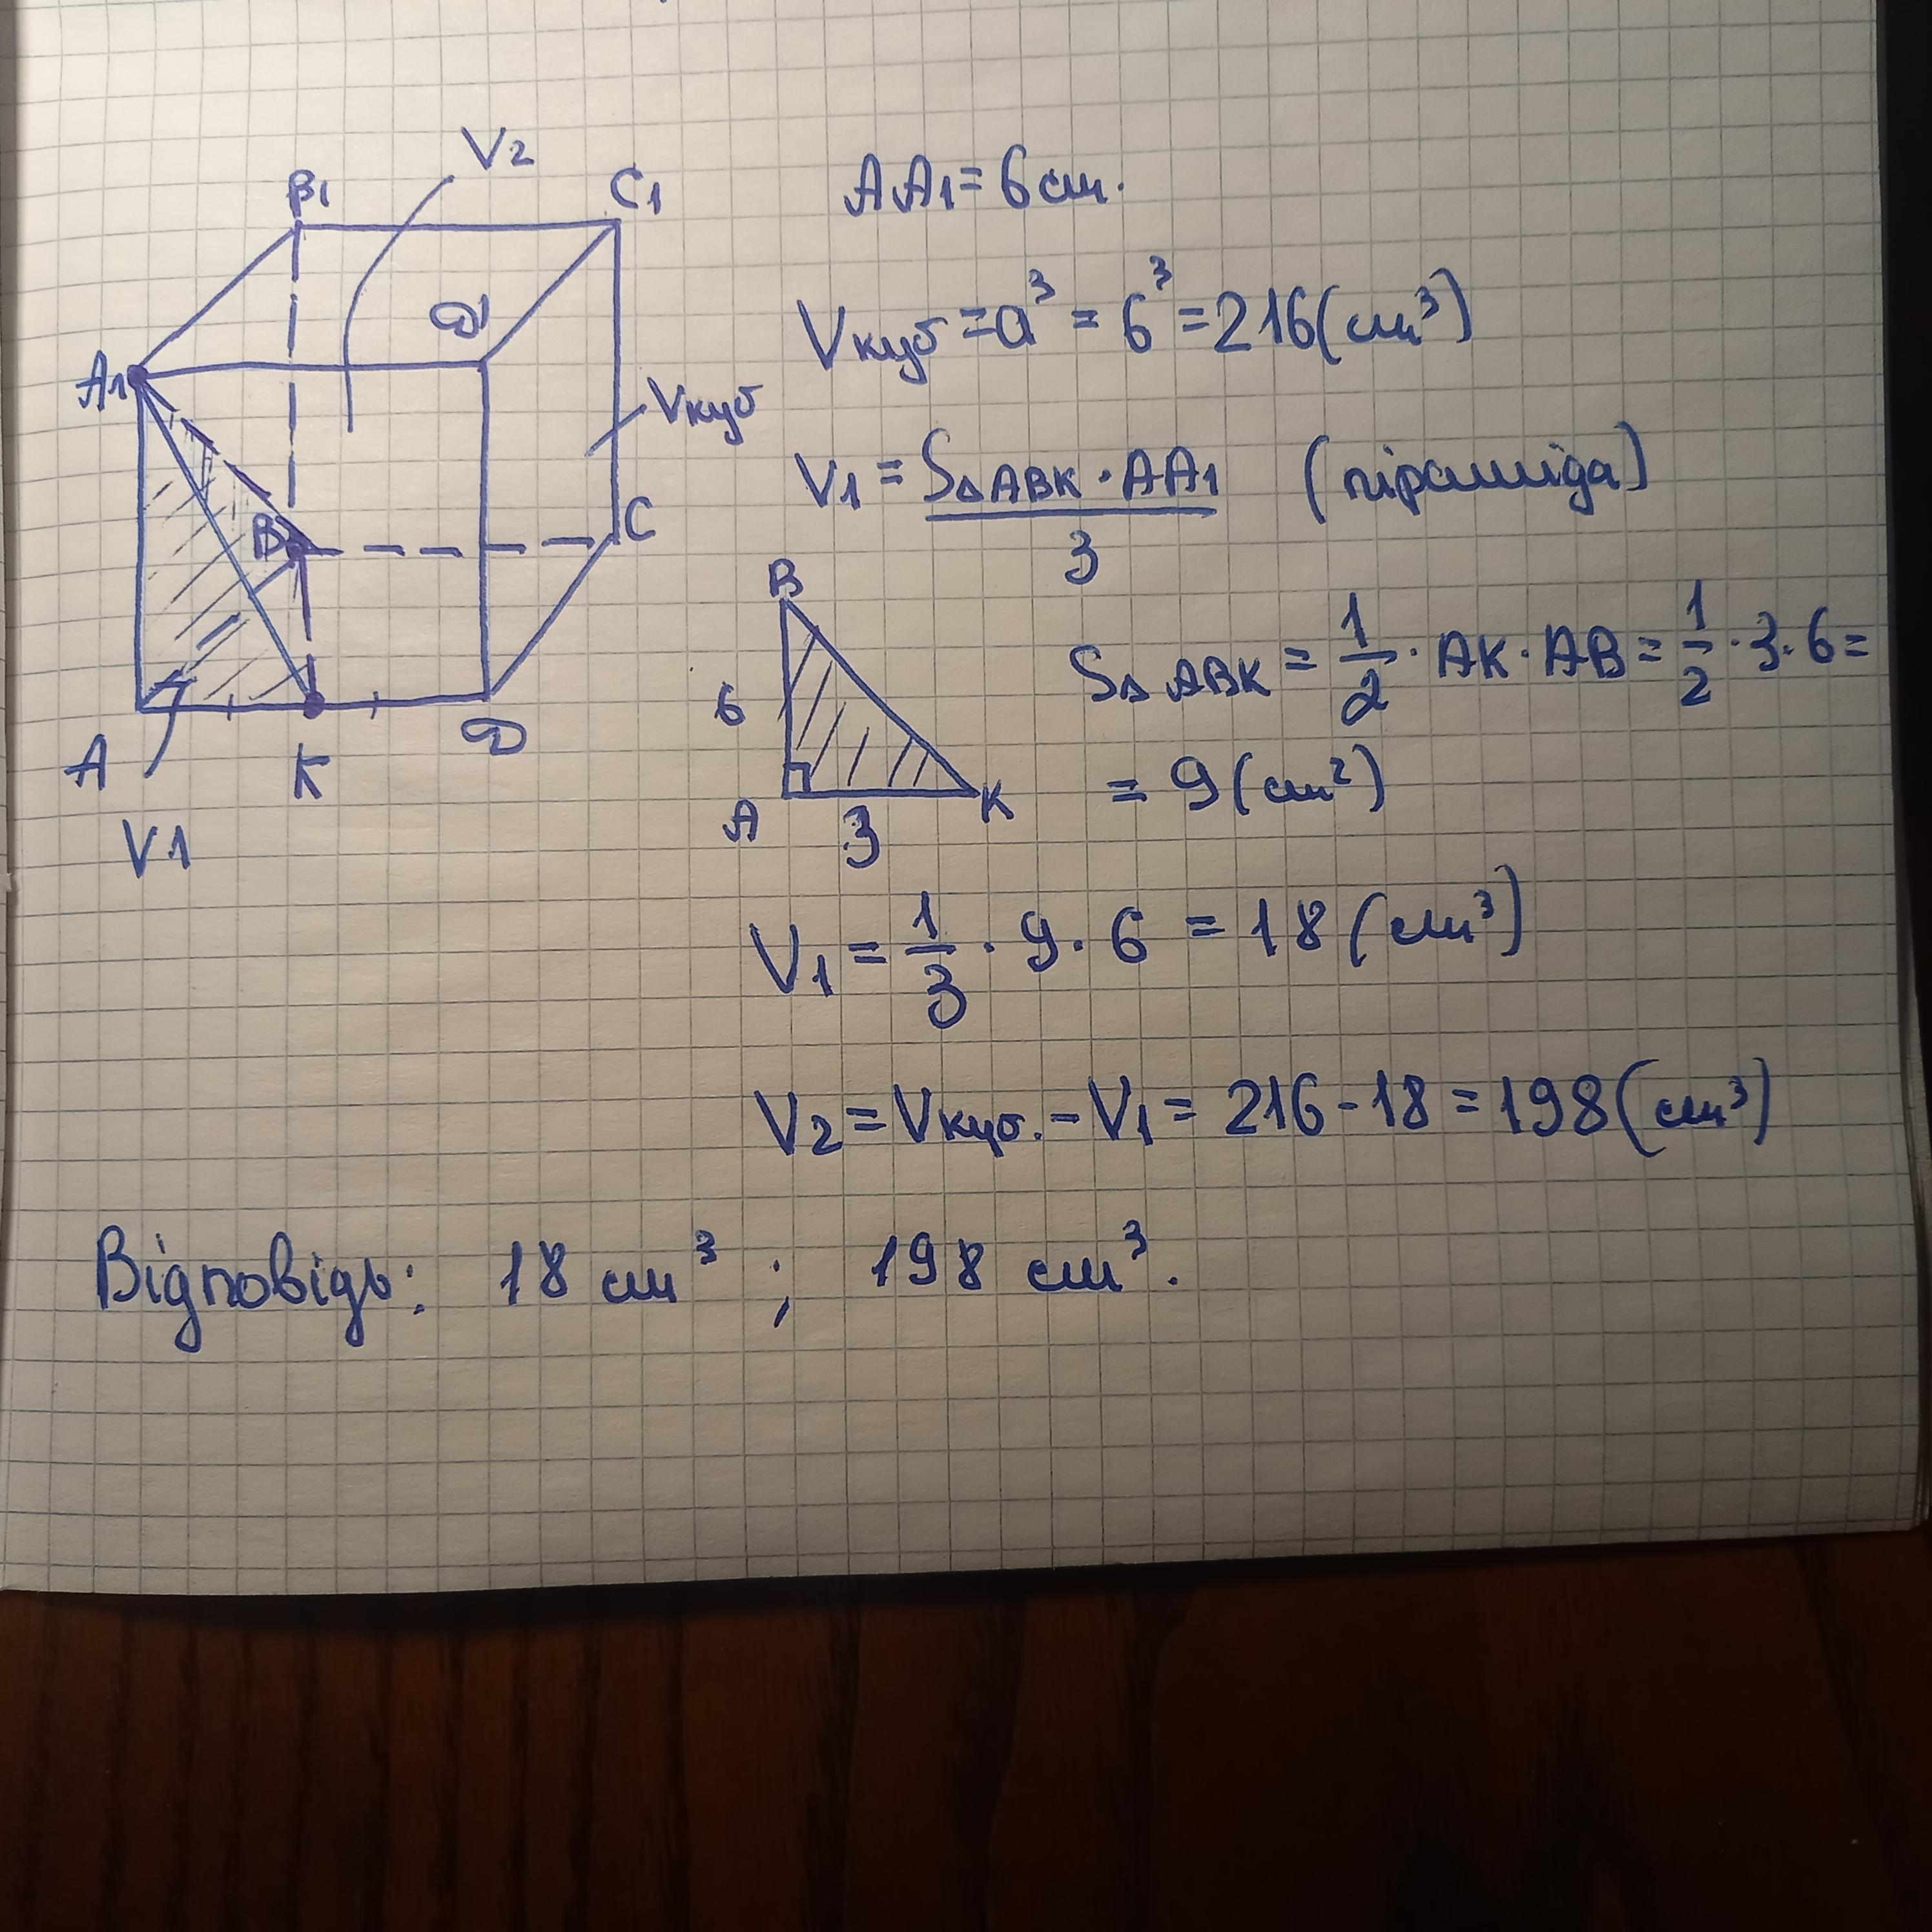 V2
B1
C1
D1
A1
Vкуб
B
C
A
K
D
V1
AA1 = 6 см.
Vкуб = a³ = 6³ = 216 (см³)
V1 = S△ABK · AA1 / 3 (піраміда)
B
6
A
3
K
S△ABK = 1/2 · AK · AB = 1/2 · 3 · 6 =
= 9 (см²)
V1 = 1/3 · 9 · 6 = 18 (см³)
V2 = Vкуб. - V1 = 216 - 18 = 198 (см³)
Відповідь: 18 см³ ; 198 см³.